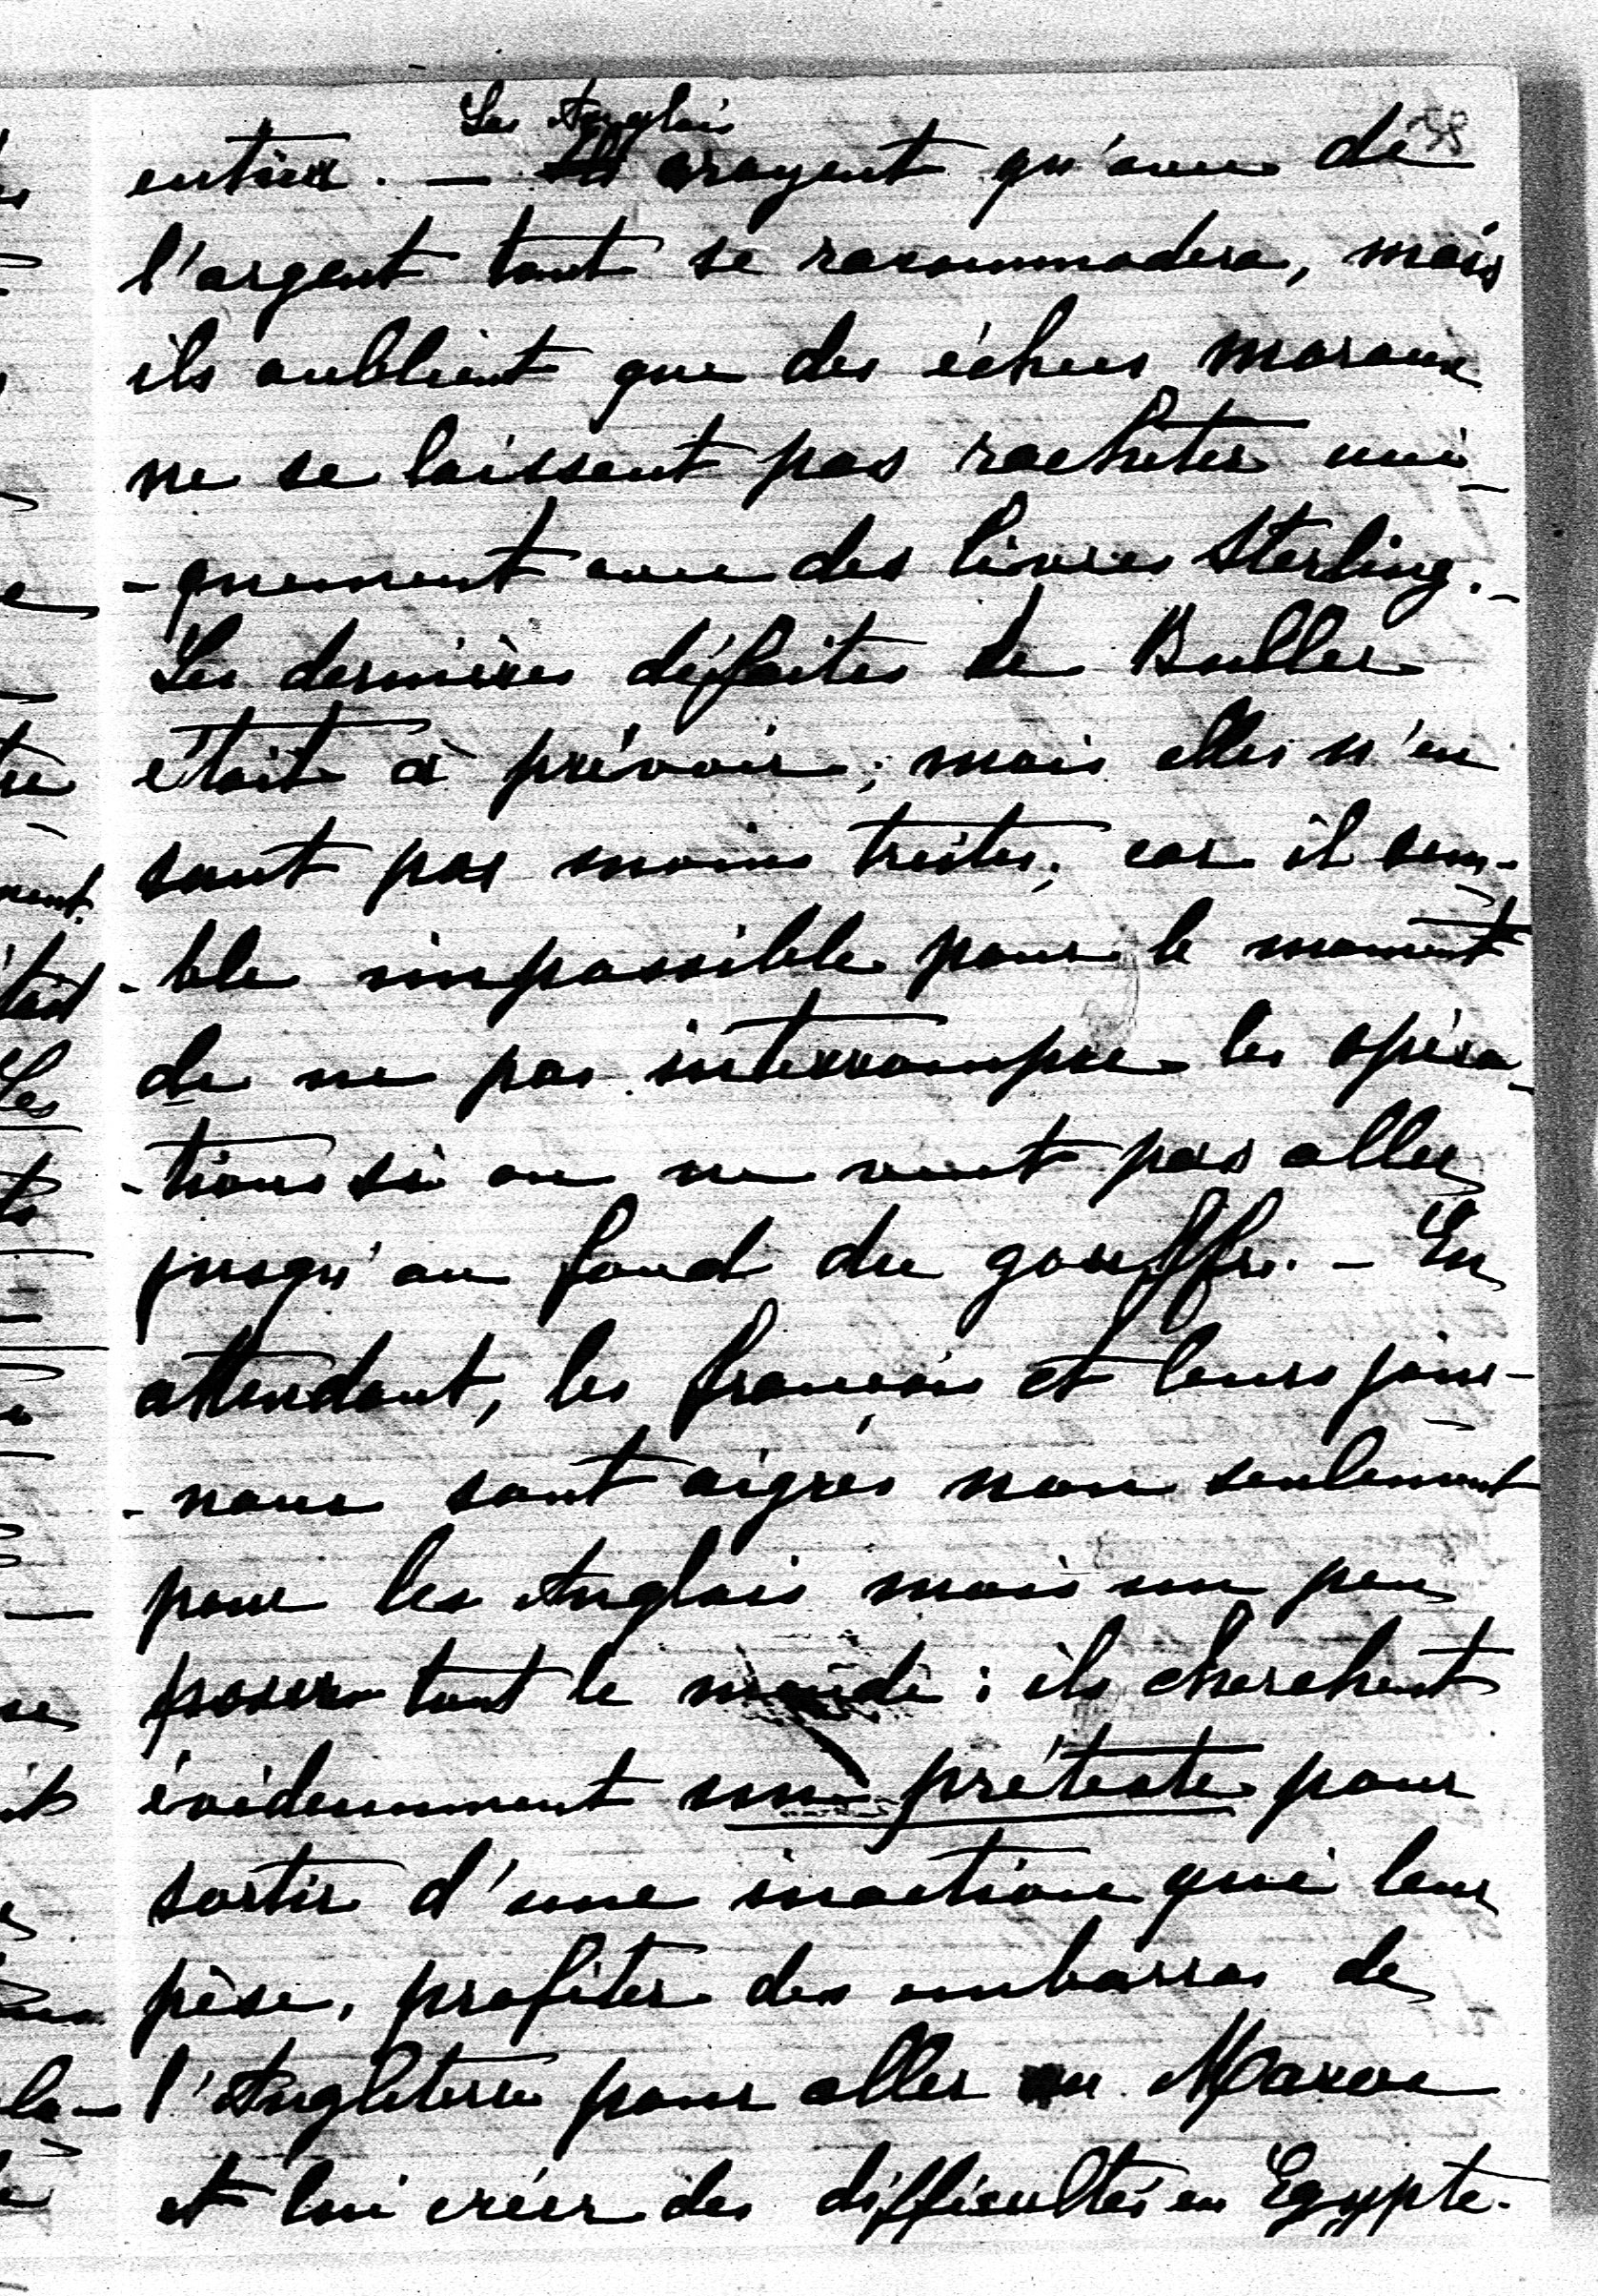 38
Les Anglais
entier. — Ils croyent qu'avec de
l'argent tout se racommodera, mais
ils oublient que des échecs moraux
ne se laissent pas racheter uni-
-quement avec des livres Sterling. -
Les dernières défaites de Buller
était à prévoir; mais elles n'en
sont pas moins tristes; car il sem-
-ble impossible pour le moment
de ne pas interrompre les opéra-
-tions si on ne veut pas aller
jusqu'au fond du gouffre. - En
attendant, les français et leurs jour-
-naux sont aigres non seulement
pour les Anglais mais un peu
pour tout le monde: ils cherchent
évidemment un prétexte pour
sortir d'une inaction qui leur
pèse, profiter des embarras de
l'Angleterre pour aller au Maroc
et lui créer des difficultés en Egypte.